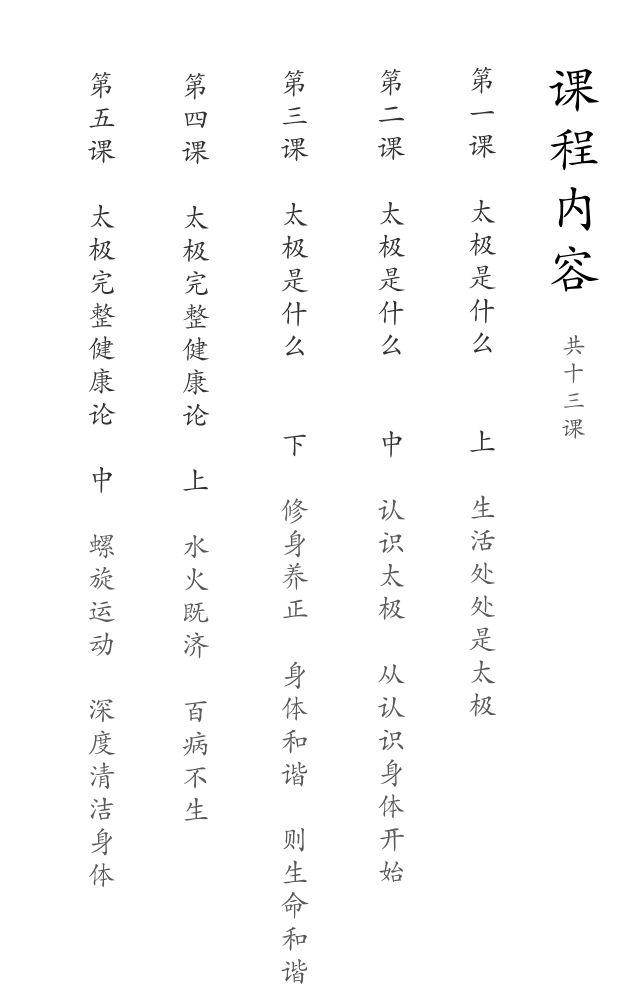 课程内容 共十三课
第一课 太极是什么 上 生活处处是太极
第二课 太极是什么 中 认识太极 从认识身体开始
第三课 太极是什么 下 修身养正 身体和谐 则生命和谐
第四课 太极完整健康论 上 水火既济 百病不生
第五课 太极完整健康论 中 螺旋运动 深度清洁身体